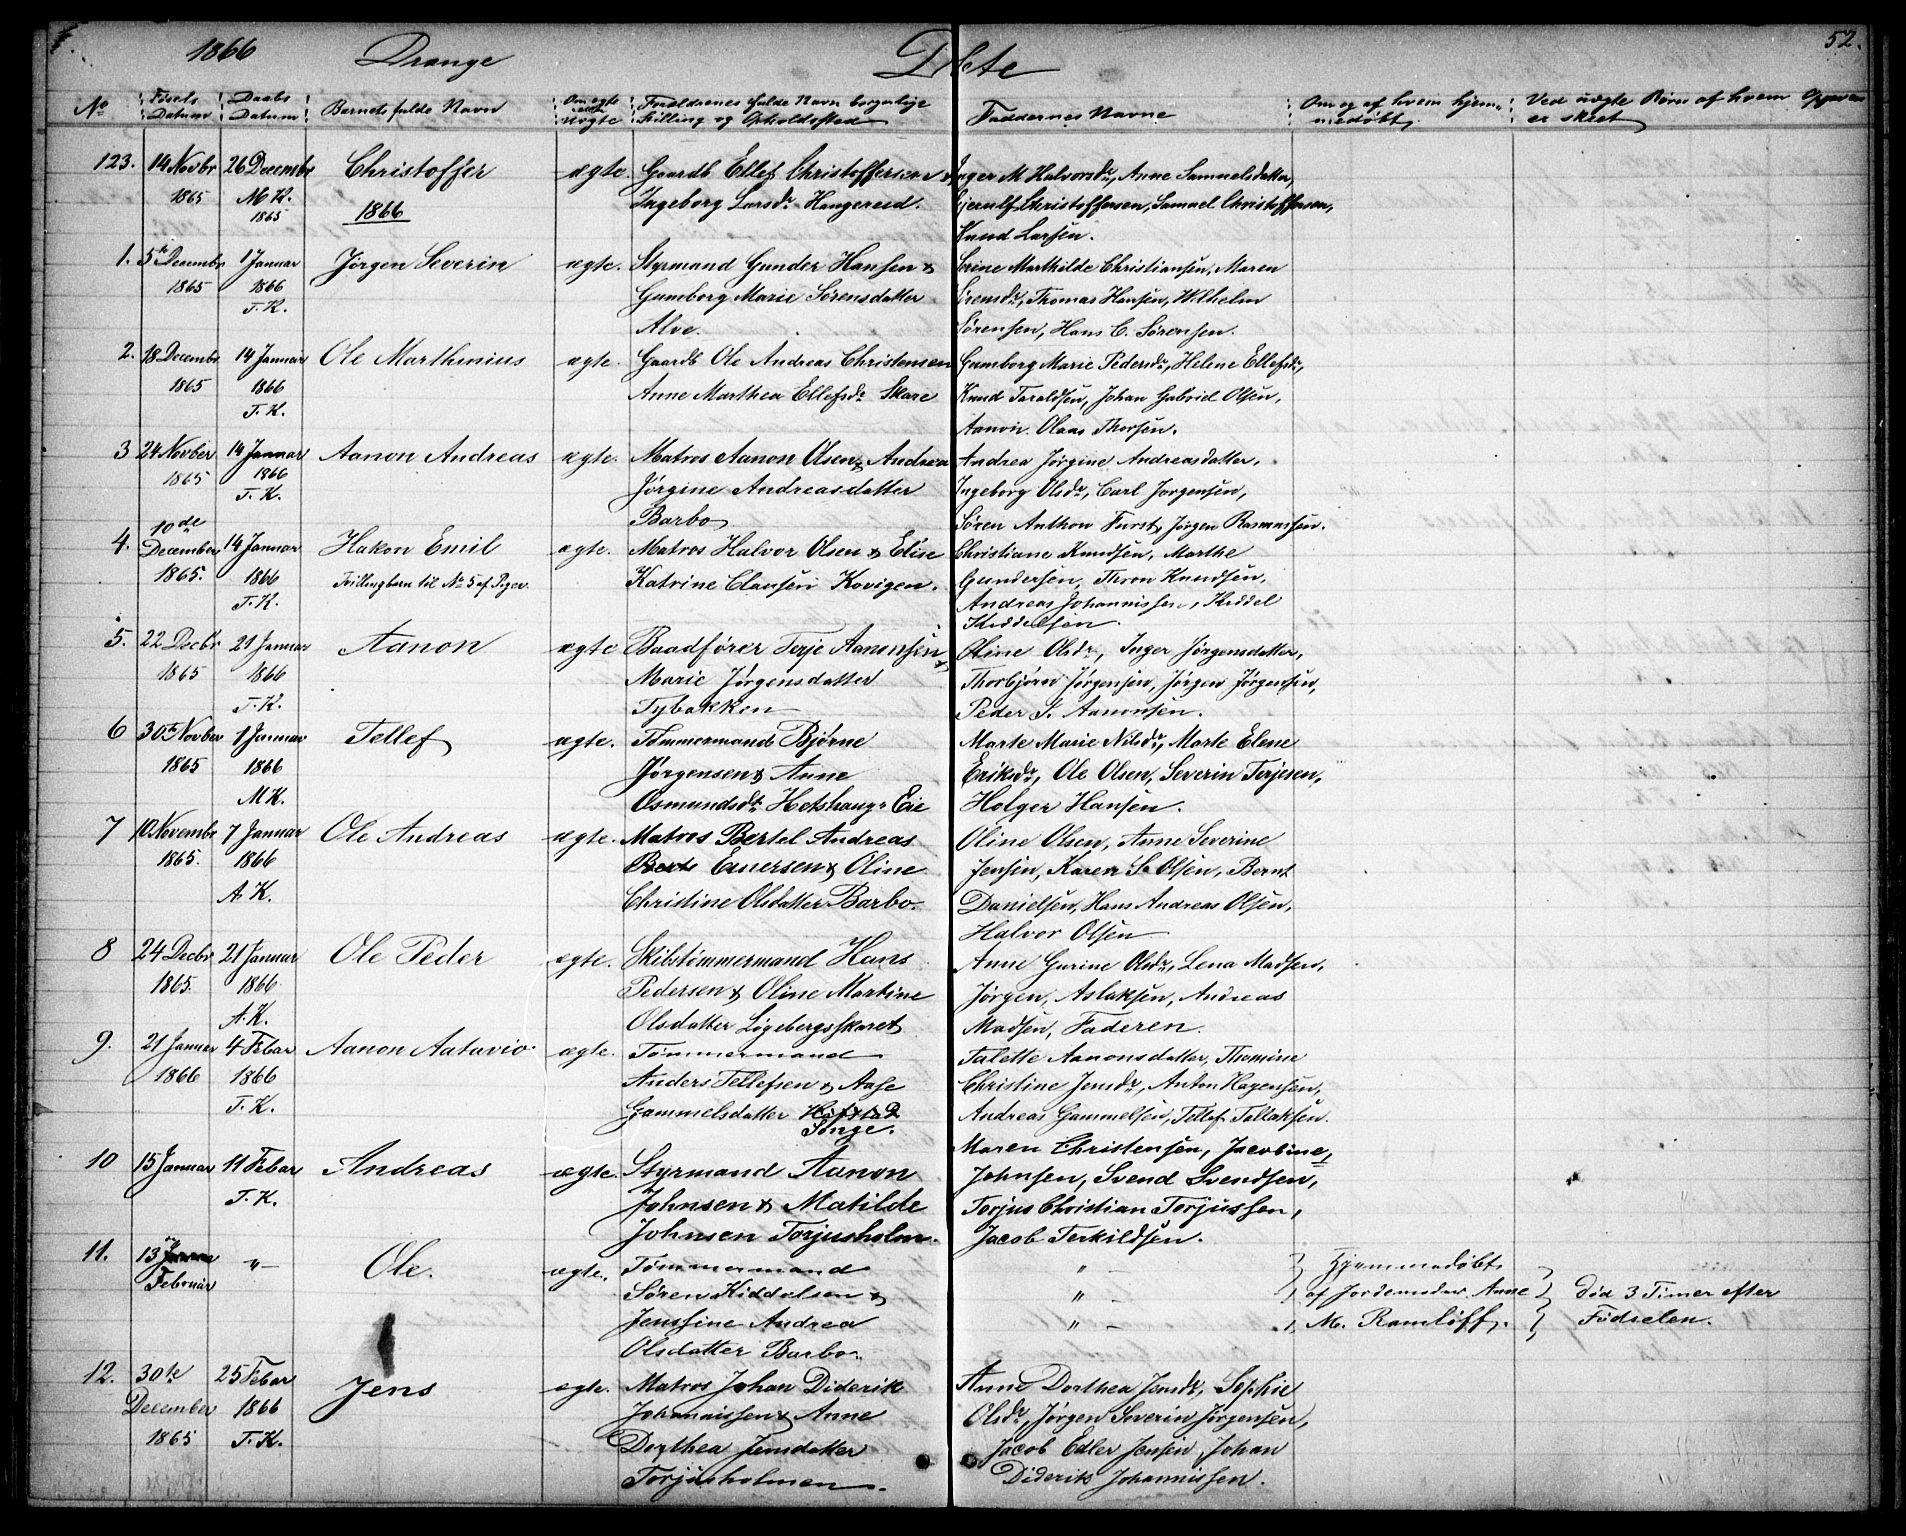 1866 Drange Døbte 52.
No Føsels Datum Daabs Datum Barnets fulde Navn Om ægte eller uægte Forældrenes fulde Navn borgerlige Stilling og Opholdssted Faddernes Navne Om og af hvem hjemmedøbt Ved uægte Børn af hvem er skeet
123. 14 Novbr 26 Decembr Christoffer ægte. Gaardb Ellef Christoffersen & Inger M Halvorsdr, Anne Samuelsdatter,
1865 M K. Ingeborg Larsdr Haugerud. Gjerulf Christoffersen, Samuel Christoffersen,
1865 1866 Knud Larsen.
1. 5te Decembr 1 Januar Jørgen Severin ægte. Styrmand Gunder Hansen & Serine Marthilde Christiansen, Maren
1865 1866 Gumborg Marie Sørensdatter Sørensdr, Thomas Hansen, Wilhelm
T. K. Alve. Sørensen, Hans C. Sørensen.
2. 18 Decembr 14 Januar Ole Marthinius ægte. Gaardb Ole Andreas Christensen Gumborg Marie Pedersdr, Helene Ellefsdr,
1865 1866 Anne Marthea Ellefsdr Skare Knud Taraldsen, Johan Gabriel Olsen,
T. K. Aanon Olaas Thorsen.
3 24 Novber 14 Januar Aanon Andreas ægte. Matros Aanon Olsen & Andrea Andrea Jørgine Andreasdatter,
1865 1866 Jørgine Andreasdatter Ingeborg Olsdr, Carl Jorgensen,
T. K. Barbo Søren Anthon Furst, Jørgen Rasmussen.
10de
4. December 14 Januar Hakon Emil ægte. Matros Halvor Olsen & Elise Christiane Knudsen, Marthe
1865. 1866 Tvillingbarn til No 5 af Piger. Katrine Clausen Kovigen. Gundersen, Thron Knudsen,
T. K. Andreas Johannissen, Kiddel
Kiddelsen.
5. 22 Decbr 21 Januar Aanon ægte Baadfører Terje Aanonsen & Oline Olsdr, Inger Jørgensdatter,
1865 1866 Marie Jørgensdatter Thorbjørn Jørgensen, Jørgen Jørgensen,
T. K. Tybakken Peder T. Aanonsen.
6 30te Novber 1 Januar Tellef ægte. Tømmermand Bjørne Marte Marie Nilsdr, Marte Elene
1865 1866 Jørgensen & Anne Eriksdr, Ole Olsen, Severin Terjesen,
M K. Osmundsdt Hetshaug Eie Holger Hansen.
7 10 Novembr 7 Januar Ole Andreas ægte. Matros Bertel Andreas Oline Olsen, Anne Severine
1865. 1866 Einersen & Oline Jensen, Karen S Olsen, Bernt
A. K. Christine Olsdatter Barbo. Danielsen, Hans Andreas Olsen,
Halvor Olsen
8 24 Decbr 21 Januar Ole Peder ægte. Skibstimmermand Hans Anne Gurine Olsdr, Lena Madsen,
1865. 1866 Pedersen & Oline Martine Jørgen, Aslaksen, Andreas
A. K. Olsdatter Løgebergsskaret Madsen, Faderen.
9. 21 Januar 4 Febar Aanon Aatavio ægte. Tømmermand Talette Aanonsdatter, Thomine
1866 1866 Anders Tellefsen & Aase Christine Jensdr, Anton Hagensen,
T. K. Gammelsdatter Andreas Gammelsen, Tellef Tallaksen.
Songe.
Maren Christensen, Jacobine,
10 15 Januar 11 Febar Andreas ægte. Styrmand Aanon Johnsen, Svend Svendsen,
T. K. Johnsen & Matilde Torjus Christian Torjussen,
Johnsen Torjusholm. Jacob Terkildsen.
11. 13 " Ole. ægte. Tømmermand " Hjemmedøbt
Februar Søren Kiddelsen & " af Jordemoder Anne Død 3 Timer efter
Jensine Andrea " M. Ramløff. Fødselen.
Olsdatter Barbo.
12. 30te 25 Febar Jens ægte. Matros Johan Diderik Anne Dorthea Jensdr, Sophie
December 1866 Johannissen & Anne Olsdr, Jørgen Severin Jørgensen,
1865 T. K. Dorthea Jensdatter Jacob Edler Jensen, Johan
Torjusholmen. Dideriks Johannissen.